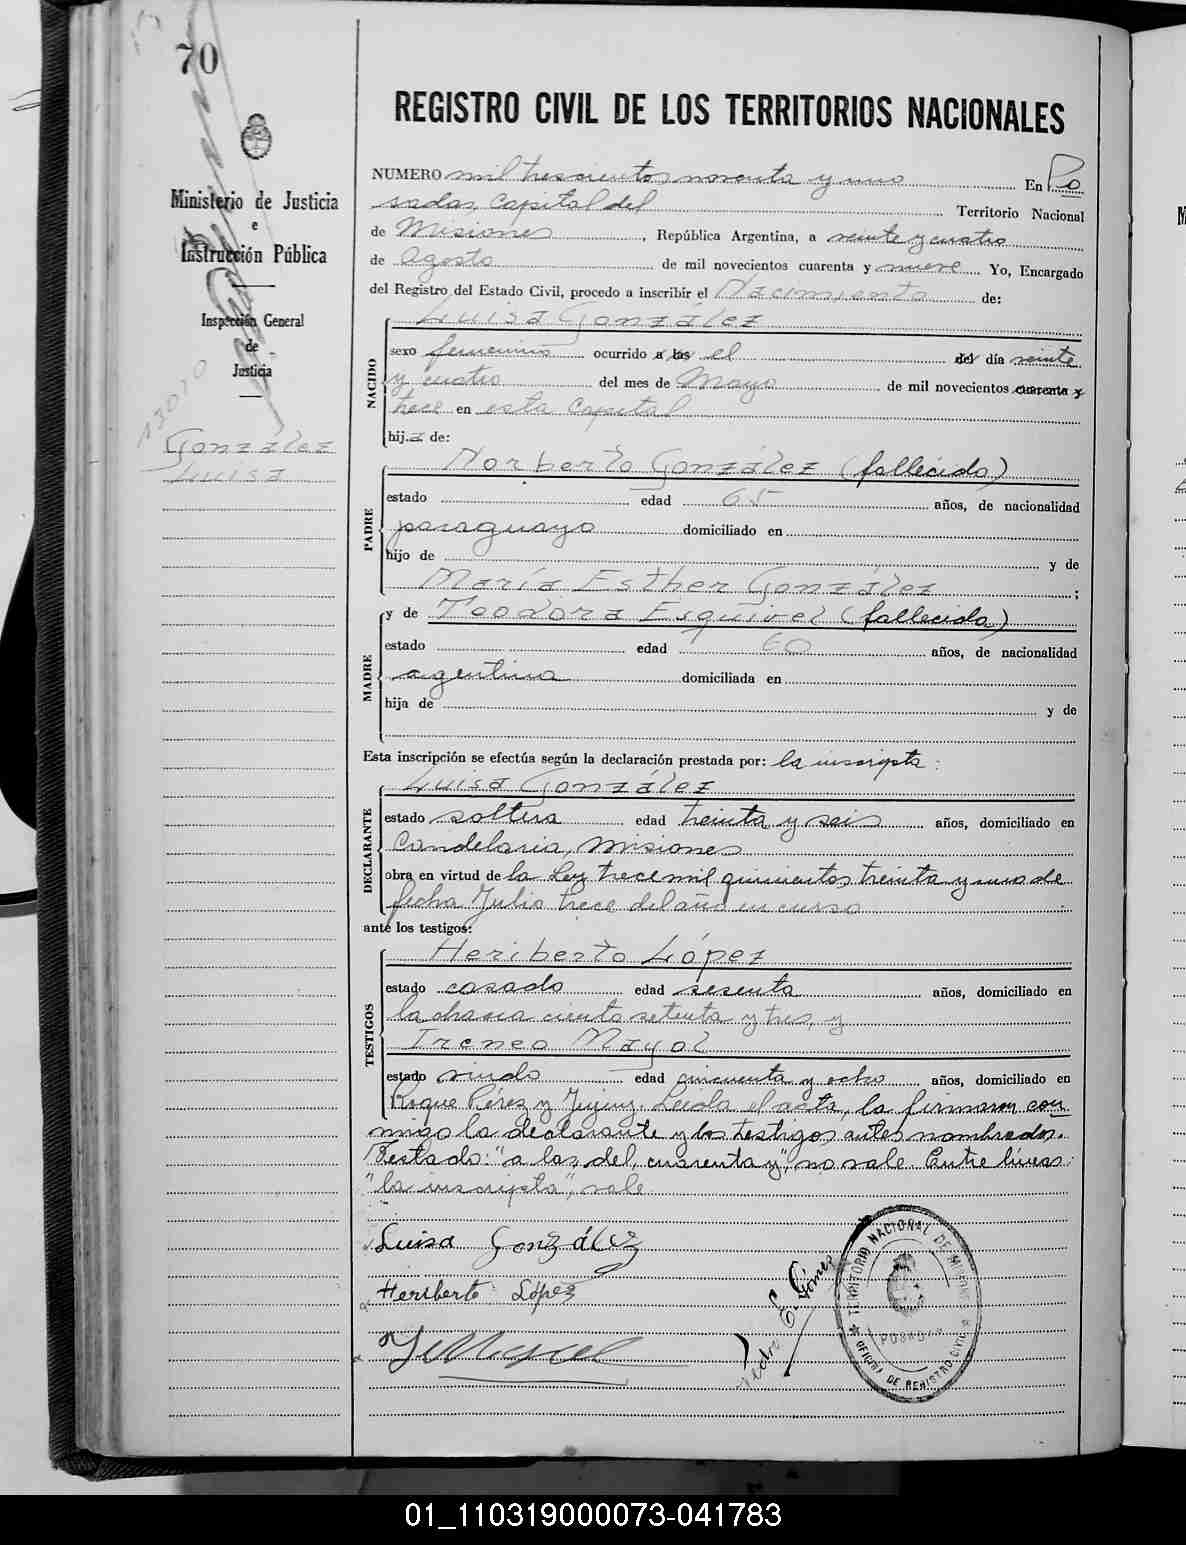 70
REGISTRO CIVIL DE LOS TERRITORIOS NACIONALES
Ministerio de Justicia
e
Instrucción Pública
Inspección General
de
Justicia
13070
González
Luisa
NUMERO mil trescientos noventa y uno En Po
sadas, Capital del Territorio Nacional
de Misiones, República Argentina, a veinte y cuatro
de Agosto de mil novecientos cuarenta y nueve Yo, Encargado
del Registro del Estado Civil, procedo a inscribir el Nacimiento de:
NACIDO
Luisa González
sexo femenino ocurrido a las el del día veinte
y cuatro del mes de Mayo de mil novecientos cuarenta y
trece en esta Capital
hija de:
PADRE
Norberto González (fallecido)
estado edad 65 años, de nacionalidad
paraguayo domiciliado en
hijo de y de
María Esther González;
MADRE
y de Teodora Esquivel (fallecida)
estado edad 60 años, de nacionalidad
argentina domiciliada en
hija de y de
Esta inscripción se efectúa según la declaración prestada por: la inscripta:
DECLARANTE
Luisa González
estado soltera edad treinta y seis años, domiciliado en
Candelaria, Misiones
obra en virtud de la Ley trece mil quinientos treinta y uno de
fecha Julio trece del año en curso
ante los testigos:
TESTIGOS
Heriberto López
estado casado edad sesenta años, domiciliado en
la chacra ciento setenta y tres, y
Ireneo Mayol
estado viudo edad cincuenta y ocho años, domiciliado en
Roque Pérez y Jujuy. Leida el acta, la firmaron con
migo la declarante y los testigos antes nombrados.
Testado: "a las, del, cuarenta y", no vale. Entre líneas:
"la inscripta", vale
Luisa González
Heriberto López
Pedro E. Gómez
TERRITORIO NACIONAL DE MISIONES
POSADAS
OFICINA DE REGISTRO CIVIL
01_110319000073-041783